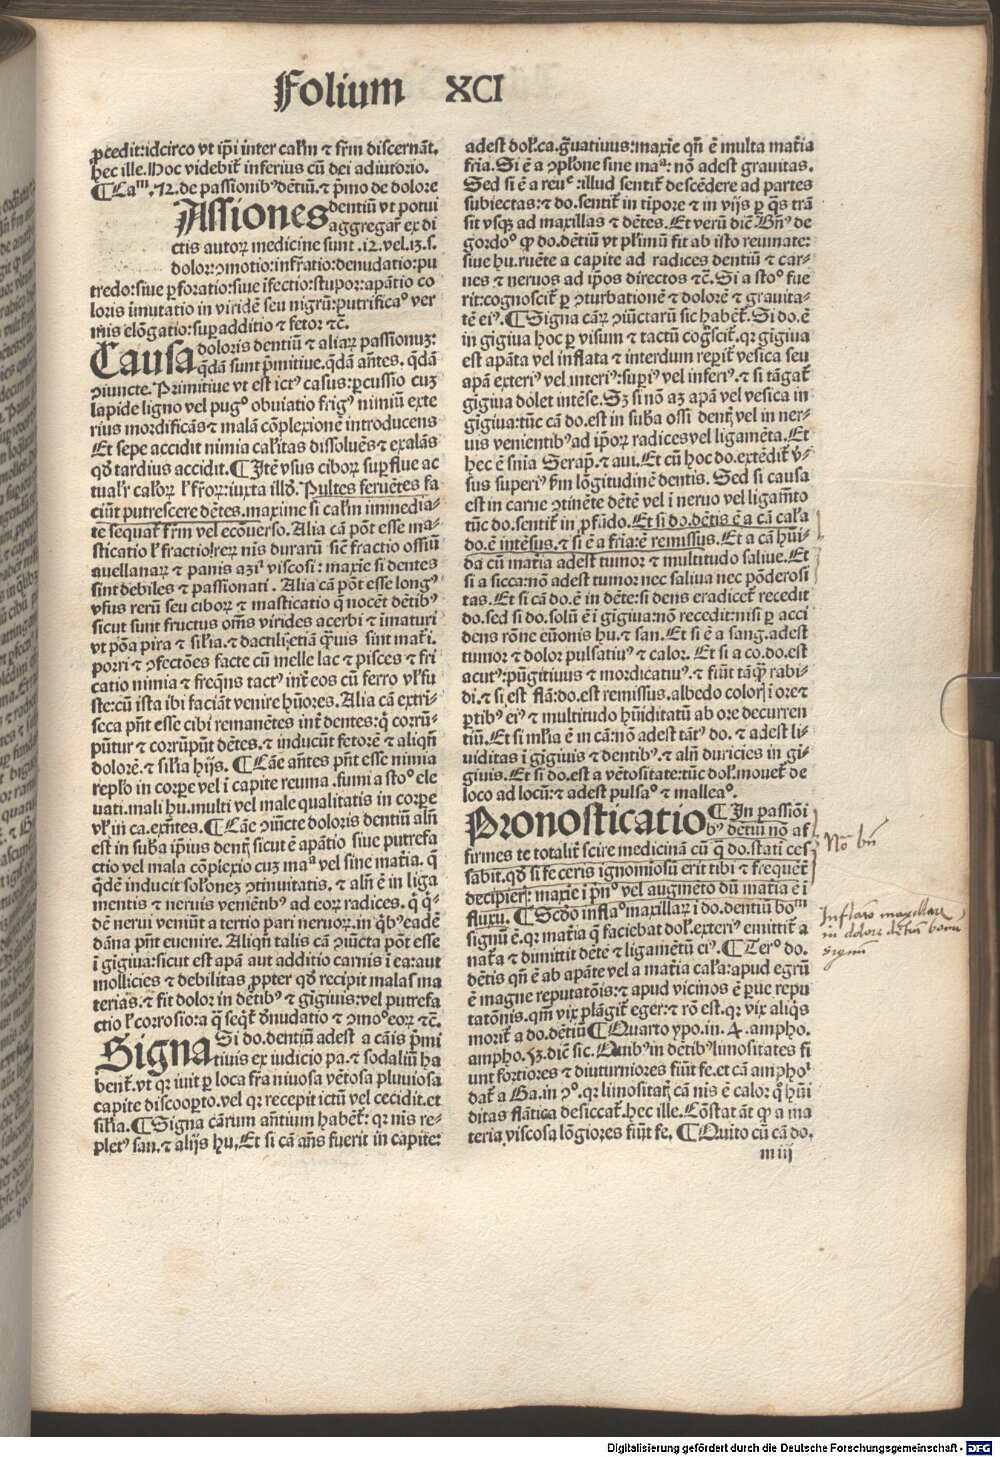 Folium XCI
ꝓcedit: idcirco vt ip̄i inter cal̄m ⁊ fr̄m discernāt.
hec ille. Hoc videbit̄ inferius cū dei adiutorio.
¶ Caᵐ. 12. de passionibꝰ dētiū. ⁊ p̄mo de dolore
Assiones dentiū vt potui
aggregar̄ ex di
ctis autoꝝ medicine sunt .12. vel .13. s.
dolor: ↄmotio: infr̄atio: denudatio: pu
tredo: siue ꝑforatio: siue īfectio: stupor: apātio co
loris īmutatio in viridē seu nigrū: putrificaᵒ ver
mis elōgatio: suꝑadditio ⁊ fetor ⁊c̄.
Causa doloris dentiū ⁊ aliaꝝ passionuꝫ:
q̄dā sunt p̄mitiue. q̄dā an̄tes. q̄dā
ↄiuncte. Primitiue vt est ictꝰ casus: ꝑcussio cuꝫ
lapide ligno vel pugᵒ obuiatio frigꝰ nimiū exte
rius mordificās ⁊ malā cōplexionē introducens
Et sepe accidit nimia caliitas dissoluēs ⁊ exalās
qd̄ tardius accidit. ¶ Itē vsus ciboꝝ suꝑflue ac
tual̄r caloꝝ l̄ fr̄oꝝ: iuxta illd̄. Pultes feruētes fa
ciūt putrescere dētes. maxime si cal̄m immedia-
te sequat̄ fr̄m vel ecōuerso. Alia cā pōt esse ma-
sticatio l̄ fractio reꝝ nis duraꝝ sic̄ fractio ossiū
auellanaꝝ ⁊ panis aꝫi viscosi: maxie si dentes
sint debiles ⁊ passionati. Alia cā pōt esse longꝰ
vsus rerū seu ciboꝝ ⁊ masticatio q̄ nocēt dētibꝰ
sicut sunt fructus om̄s virides acerbi ⁊ īmaturi
vt pōa pira ⁊ sil̄ia. ⁊ dactili: etiā q̄uis sint mat̄i.
porri ⁊ ↄfectōes facte cū melle lac ⁊ pisces ⁊ fri
catio nimia ⁊ freqn̄s tactꝰ int̄ eos cū ferro vl̄ fu
ste: cū ista ibi faciāt venire hūores. Alia cā extri-
seca pn̄t esse cibi remanētes int̄ dentes: q̄ corrū-
pūtur ⁊ corrūpūt dētes. ⁊ inducūt fetorē ⁊ aliqn̄
dolorē. ⁊ sil̄ia hijs. ¶ Cāe an̄tes pn̄t esse nimia
replo in corꝑe vel ī capite reuma. fumi a stoᵒ ele
uati. mali hu. multi vel male qualitatis in corꝑe
vl̄ in ca. exn̄tes. ¶ Cāe ↄiūcte doloris dentiū aln̄
est in suba īpius dentꝭ sicut ē apātio siue putrefa
ctio vel mala cōplexio cuꝫ maᵃ vel sine mat̄ia. q̄
q̄dē inducit solonez ↄtinuitatis. ⁊ aln̄ ē in liga
mentis ⁊ neruis venientibꝰ ad eoꝝ radices. q̄ q̄-
dē nerui veniūt a tertio pari neruoꝝ. in q̄bꝰ eadē
dāna pn̄t euenire. Aliqn̄ talis cā ↄiūcta pōt esse
ī gīgiua: sicut est apā aut additio carnis ī ea: aut
mollicies ⁊ debilitas ꝓpter qd̄ recipit malas ma
terias. ⁊ fit dolor in dētibꝰ ⁊ gīgiuis: vel putrefa
ctio l̄ corrosio: a q̄ seqt̄ d̄nudatio ⁊ ↄmoᵒ eoꝝ ⁊c̄.
Signa Si do. dentiū adest a cāis p̄mi
tiuis ex iudicio pa. ⁊ sodaliū ha
bent̄. vt qꝛ iuit ꝑ loca fr̄a niuosa vētosa pluuiosa
capite discooꝑto. vel qꝛ recepit ictū vel cecidit. et
sil̄ia. ¶ Signa cārum an̄tium habēt̄: qꝛ nis re-
pletꝰ san. ⁊ alijs hu. Et si cā an̄s fuerit in capite:
adest dol. ca. gͣuatiuus: maxīe qn̄ ē multa mat̄ia
fr̄ia. Si ē a ↄplōne sine maᵃ: nō adest grauitas.
Sed si ē a reuᵉ: illud sentit̄ descēdere ad partes
subiectas: ⁊ do. sentit̄ in tīpore ⁊ in vijs ꝑ q̄s trā
sit vsqꝫ ad maxillas ⁊ dētes. Et verū dicit Bn̄ꝰ de
gordoᵒ ꝙ do. dētiū vt pl̄imū fit ab isto reumate:
siue hu. ruēte a capite ad radices dentiū ⁊ car-
nes ⁊ neruos ad ip̄os directos ⁊c̄. Si a stoᵒ fue
rit: cognoscit̄ ꝑ ↄturbationē ⁊ dolorē ⁊ grauita-
tē eiꝰ. ¶ Signa cāꝝ ↄiūctarū sic habēt̄. Si do. ē
in gīgiua hoc ꝑ visum ⁊ tactū coḡscit̄. qꝛ gīgiua
est apāta vel inflata ⁊ interdum reꝑit̄ vesica seu
apā exteriꝰ vel interiꝰ: suꝑiꝰ vel inferiꝰ. ⁊ si tāgat̄
gīgiua dolet intēse. Sꝫ si nō aꝫ apā vel vesica in
gīgiua: tūc cā do. est in suba ossi dentꝭ vel in ner-
uis venientibꝰ ad ip̄oꝝ radices vel ligamēta. Et
hec ē sn̄ia Serap. ⁊ aui. Et cū hoc do. extēdit̄ v̄-
sus superiꝰ fm̄ lōgitudinē dentis. Sed si causa
est in carne ↄtinēte dētē vel ī neruo vel ligamēto
tūc do. sentit̄ in ꝓfūdo. Et si do. dētis ē a cā cal̄a
do. ē intēsus. ⁊ si ē a fr̄ia: ē remissus. Et a cā hūi-
da cū mat̄ia adest tumor ⁊ multitudo saliue. Et
si a sicca: nō adest tumor nec saliua nec pōderosi
tas. Et si cā do. ē in dēte: si dens eradicet̄ recedit
do. sed si do. solū ē ī gīgiua: nō recedit: nisi ꝑ acci
dens rōne euōnis hu. ⁊ san. Et si ē a sang. adest
tumor ⁊ dolor pulsatiuꝰ ⁊ calor. Et si a co. do. est
acutꝰ: pūgitiuus ⁊ mordicatiuꝰ. ⁊ fiūt tāqꝫ rabi-
di. ⁊ si est fla: do. est remissus. albedo colorꝭ ī ore ⁊
ꝑtibꝰ eiꝰ ⁊ multitudo hūiditatū ab ore decurren
tiū. Et si ml̄ia ē in cā: nō adest tātꝰ do. ⁊ adest li-
uiditas ī gīgiuis ⁊ dentibꝰ. ⁊ aln̄ duricies in gī-
giuis. Et si do. est a vētositate: tūc dol. mouet̄ de
loco ad locū: ⁊ adest pulsaᵒ ⁊ malleaᵒ.
Pronosticatio ¶ In passiōi
bꝰ dētiū nō af
firmes te totalit̄ scire medicinā cū q̄ do. stati ces
sabit. qd̄ si feceris ignomiosū erit tibi ⁊ frequēt̄
decipieris: maxie ī p̄nᵒ vel augmēto dū mat̄ia ē ī
fluxu. ¶ Scd̄o inflaᵒ maxillaꝝ ī do. dentiū boᵐ
signū ē. qꝛ mat̄ia q̄ faciebat dol. exteriꝰ emittit̄ a
nat̄a ⁊ dimittit dētē ⁊ ligamētū eiꝰ. ¶ Terᵒ do.
dētis qn̄ ē ab apāte vel a mat̄ia cal̄a: apud egrū
ē magne reputatōis: ⁊ apud vicinos ē ꝑue repu
tatōnis. qm̄ vix plāgit̄ eger: ⁊ rō est. qꝛ vix aliqͥs
morit̄ a do. dētiū ¶ Quarto ypo. in. 4. ampho.
ampho. 53. diē sic. Quibꝰ in dētibꝰ limositates fi
unt fortiores ⁊ diuturniores fiūt fe. et cā amphoⁱ
dat̄ a Ga. in ↄᵒ. qꝛ limositatꝭ cā nis ē calor q̄ hūi
ditas fl̄atica desiccat̄. hec ille. Cōstat āt ꝙ a ma
teria viscosa lōgiores fiūt fe. ¶ Quīto cū cā do.
m iij
No bn̄
Inflaᵒ maxillaꝝ
in dolore dētiū bonū
signū
Digitalisierung gefördert durch die Deutsche Forschungsgemeinschaft - DFG